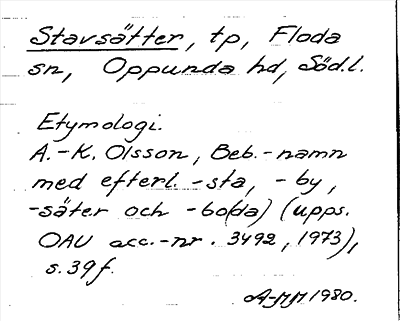 Stavsätter, tp, Floda
sn, Oppunda hd, Söd.l.
Etymologi.
A.-K. Olsson, Beb.-namn
med efterl. -sta, -by,
-säter och -bo(da) (upps.
OAU acc.-nr. 3492, 1973),
s. 39 f.
A-MM 1980.